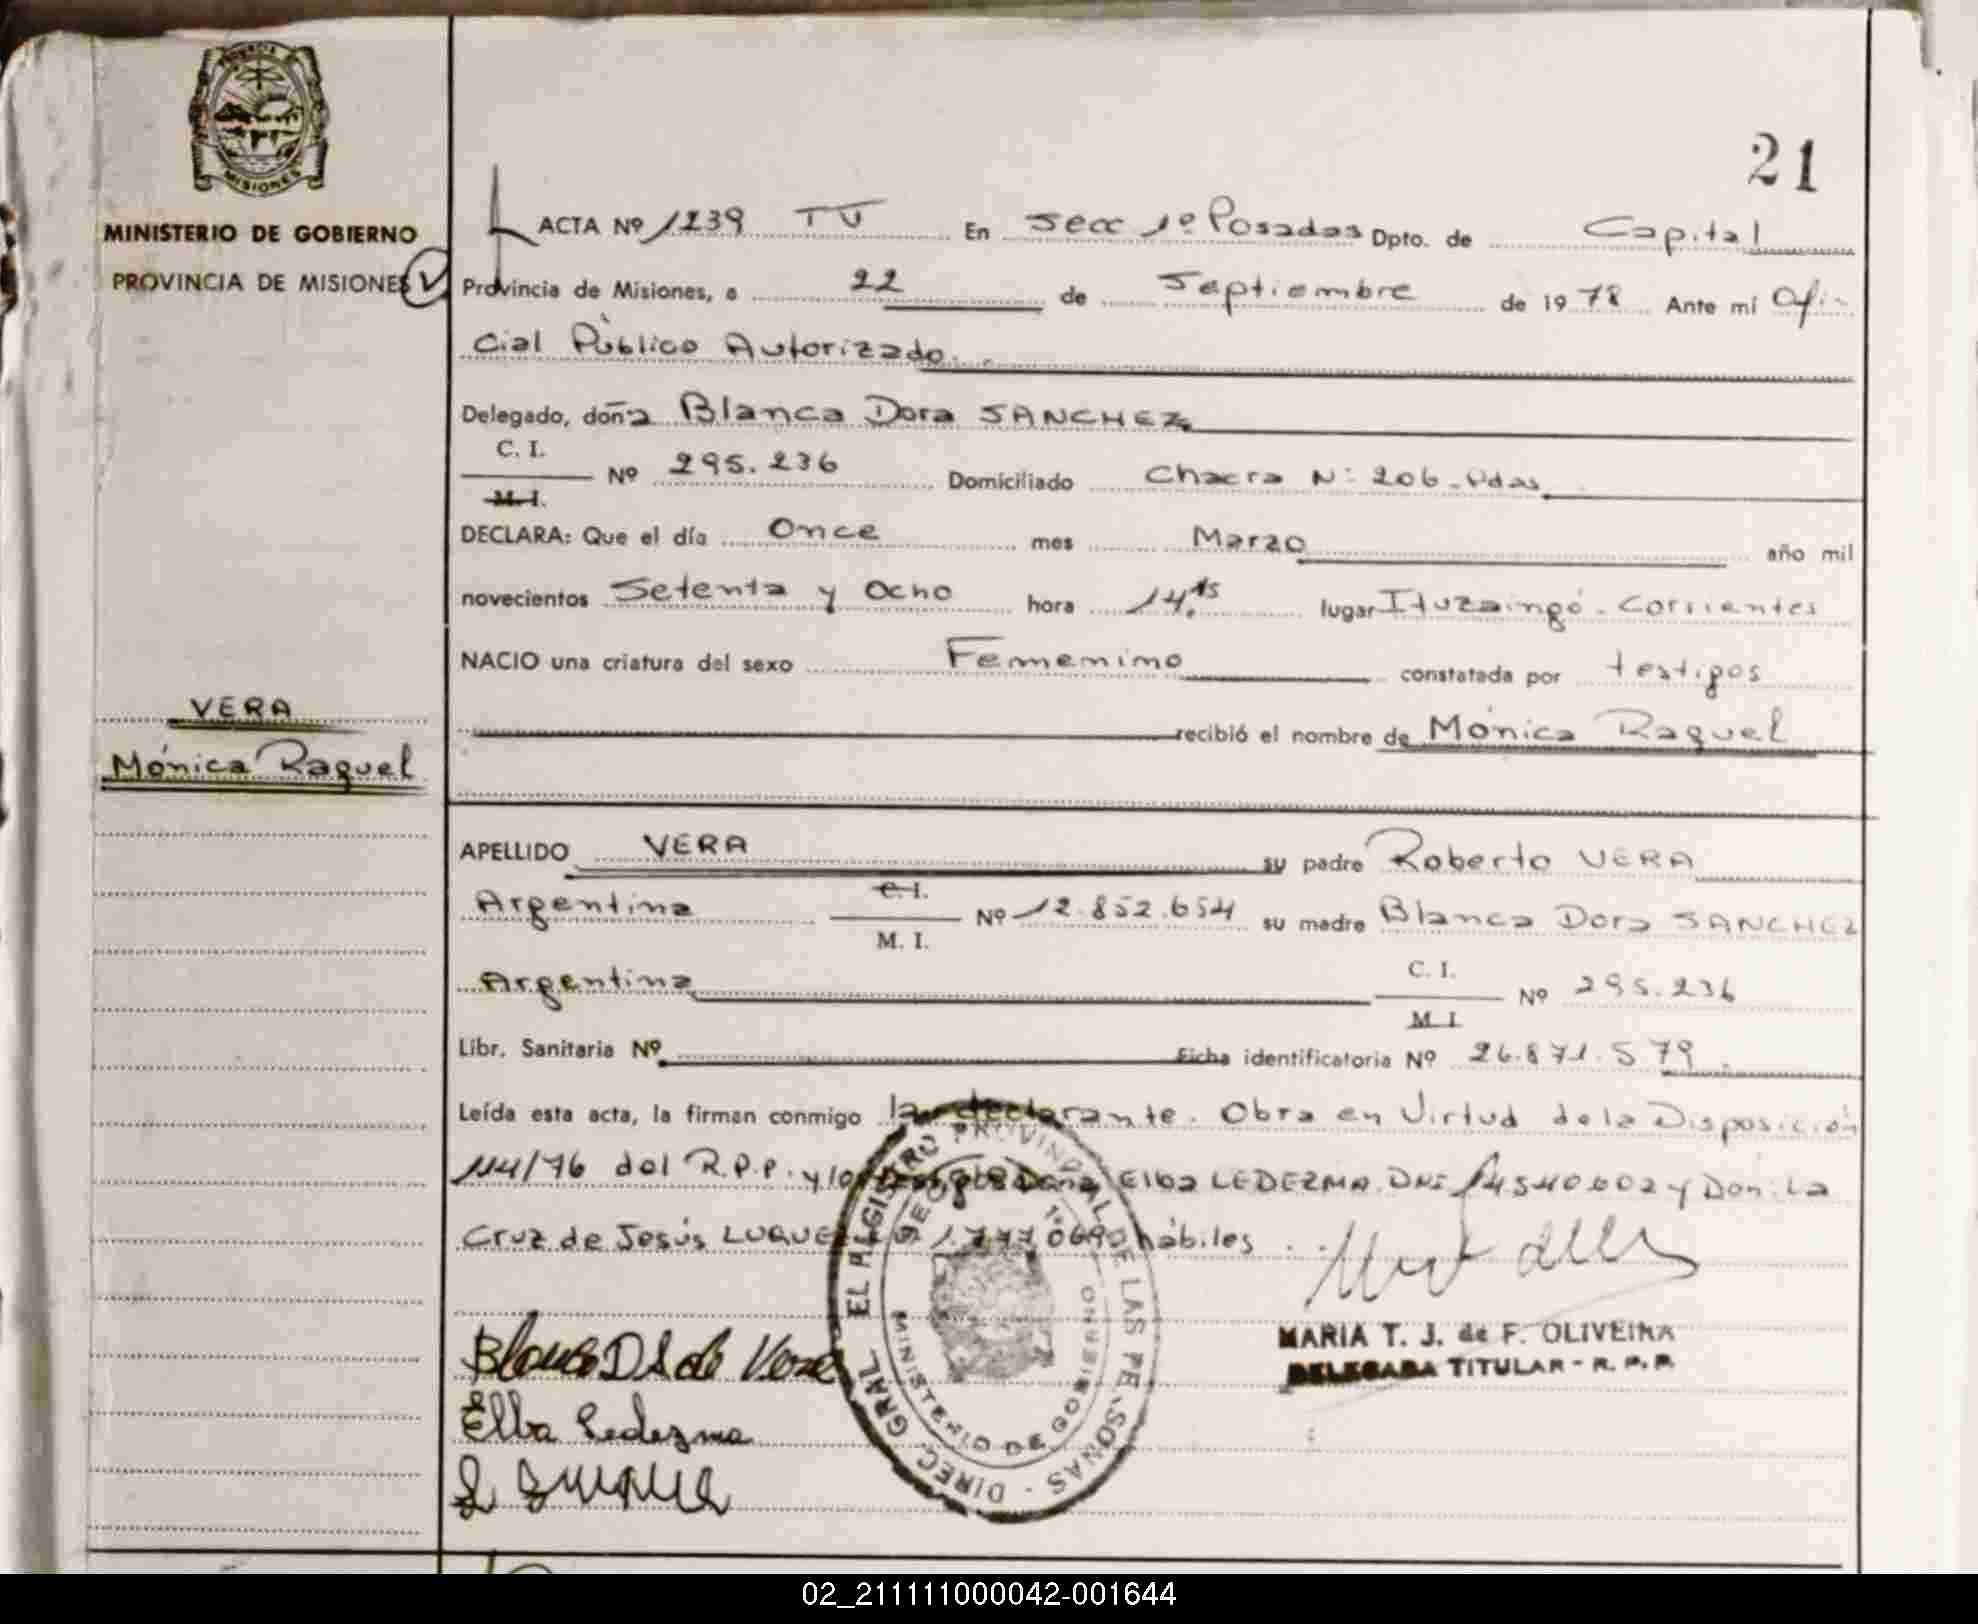 21
MISIONES
MINISTERIO DE GOBIERNO
PROVINCIA DE MISIONES
VERA
Mónica Raquel
ACTA Nº 1239 TU En Secc 1º Posadas Dpto. de Capital
Provincia de Misiones, a 22 de Septiembre de 1978 Ante mí Ofi-
cial Público Autorizado.
Delegado, doña Blanca Dora SANCHEZ
C. I.
M. I. Nº 295.236 Domiciliado Chacra Nº 206 - Pdas
DECLARA: Que el día Once mes Marzo año mil
novecientos Setenta y Ocho hora 14.15 lugar Ituzaingó - Corrientes
NACIO una criatura del sexo Femenimo constatada por testigos
recibió el nombre de Mónica Raquel
APELLIDO VERA su padre Roberto VERA
C. I.
Argentina Nº 12.852.654 su madre Blanca Dora SANCHEZ
M. I.
Argentina C. I. Nº 295.236
M. I.
Libr. Sanitaria Nº Ficha identificatoria Nº 26.871.579
Leída esta acta, la firman conmigo la declarante. Obra en Virtud de la Disposición
114/76 del R.P.P. y los testigos Doña Elba LEDEZMA DNI 4540602 y Don: La
Cruz de Jesús LUQUE hábiles
Blanca D S de Vera
Elba Ledezma
MARIA T. J. de F. OLIVEIRA
DELEGADA TITULAR - R. P. P.
DIREC. GRAL. EL REGISTRO PROVINCIAL DE LAS PERSONAS
MINISTERIO DE GOBIERNO
02_211111000042-001644